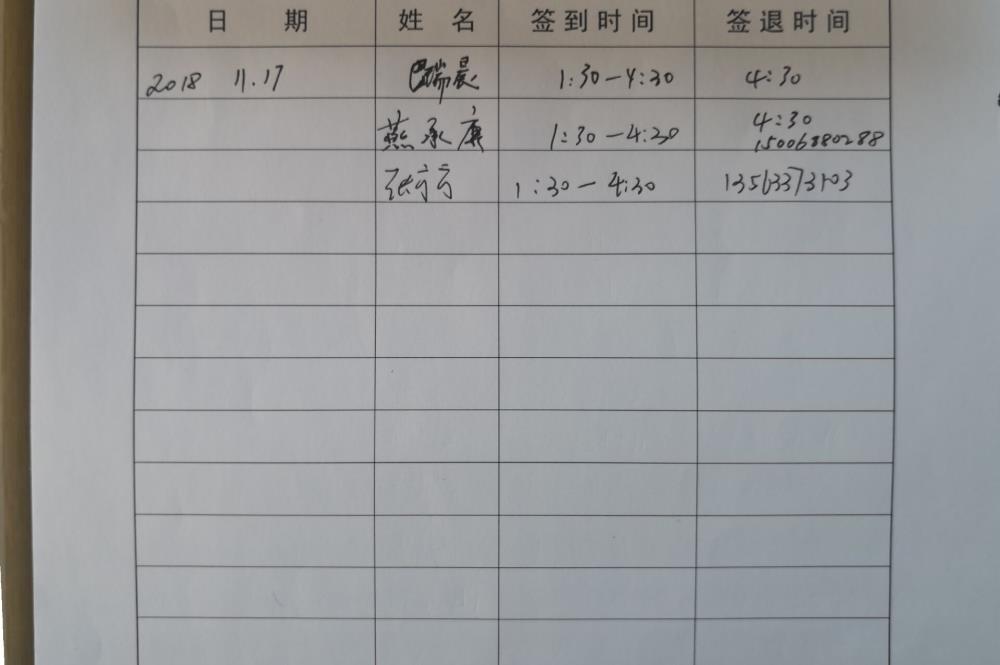 日 期 姓 名 签到时间 签退时间
2018 11.17 巴瑞晨 1:30-4:30 4:30
燕承康 1:30-4:30 4:30
15006880288
张 1:30-4:30